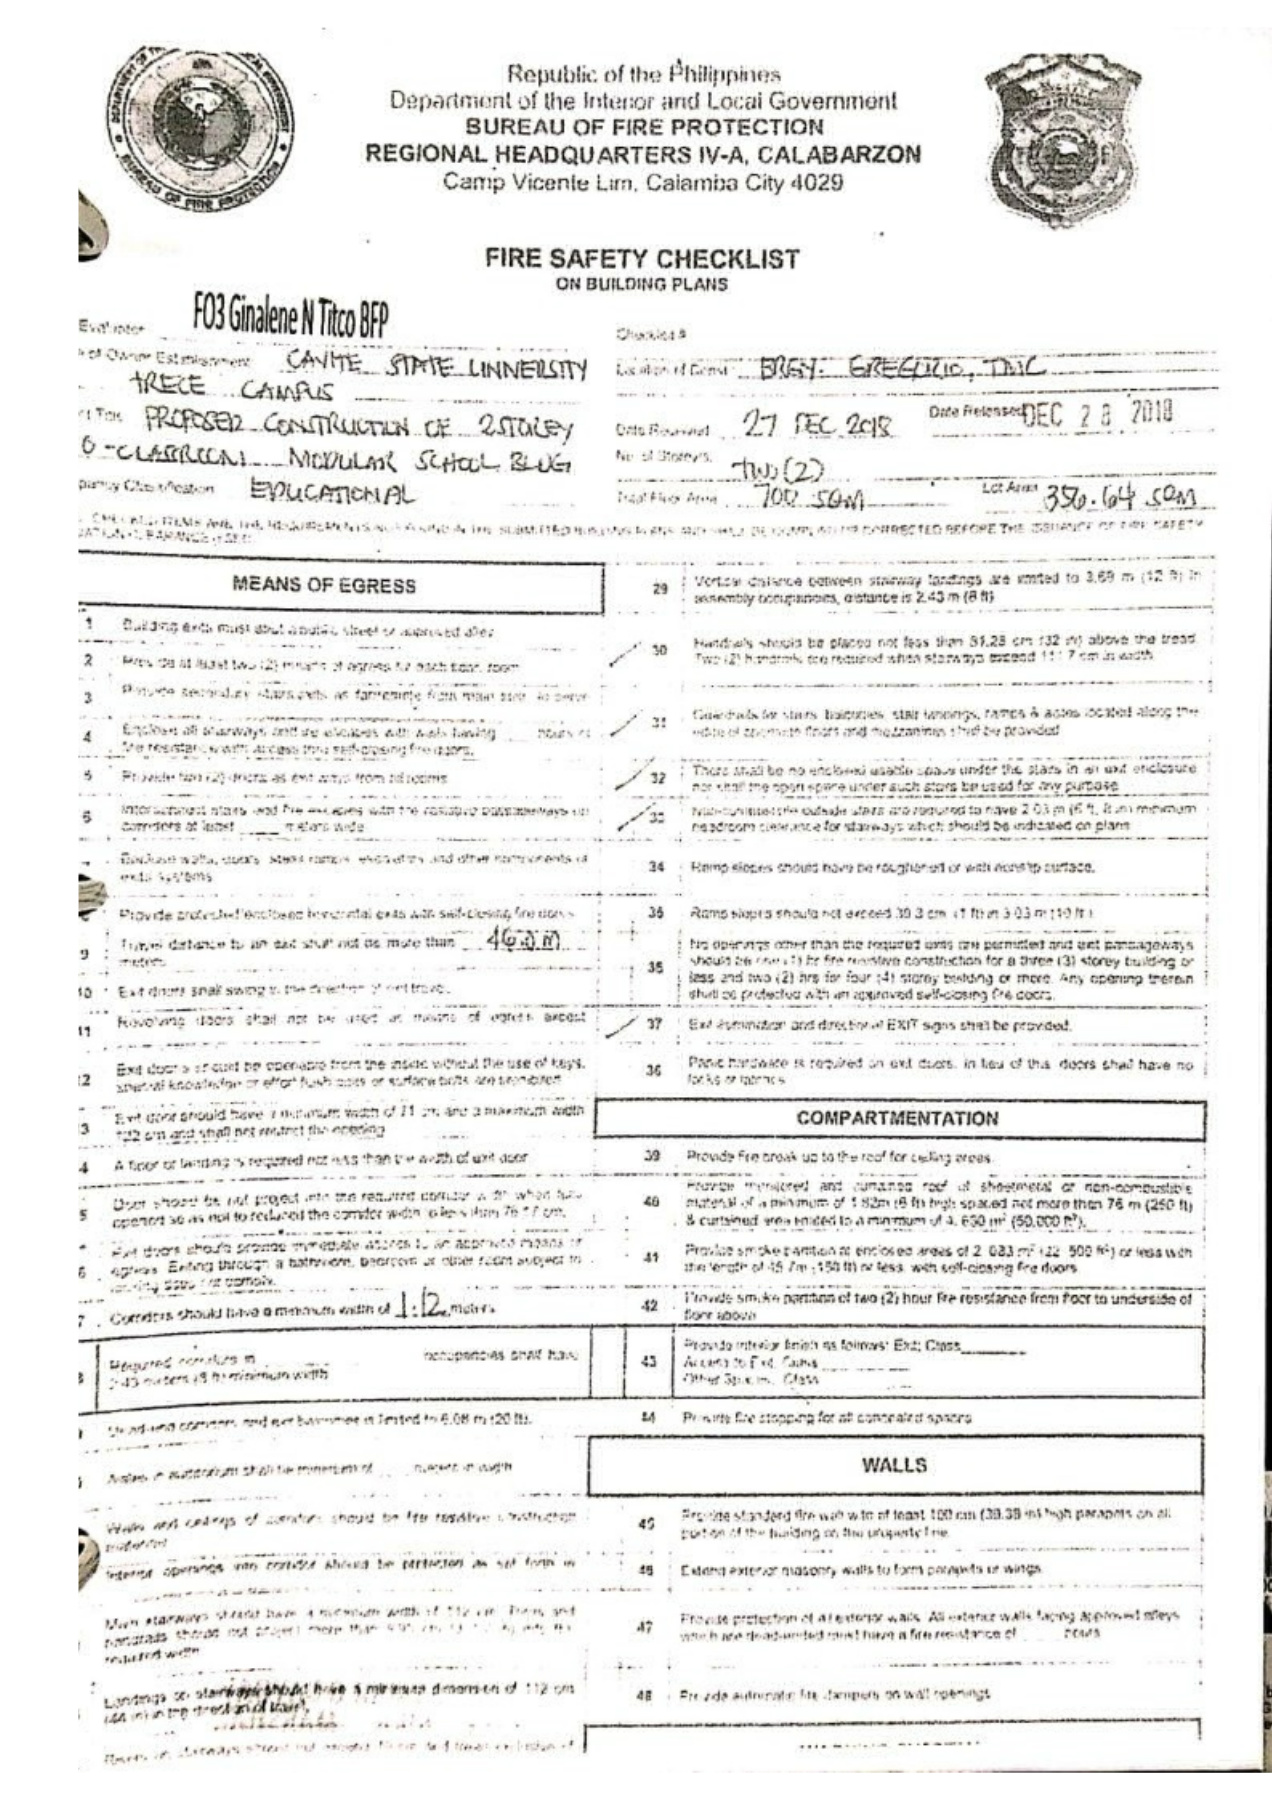 Republic of the Philippines
Department of the Interior and Local Government
BUREAU OF FIRE PROTECTION
REGIONAL HEADQUARTERS IV-A, CALABARZON
Camp Vicente Lim, Calamba City 4029
BUREAU OF FIRE PROTECTION
FIRE SAFETY CHECKLIST
ON BUILDING PLANS
Evaluator FO3 Ginalene N Titco BFP
Checklist #
of Owner Establishment CAVITE STATE UNIVERSITY
TRECE CAMPUS
Location of Const BRGY. GREGORIO, TMC
PROPOSED CONSTRUCTION OF 2 STOREY
-CLASSROOM MODULAR SCHOOL BLDG
Date Received 27 DEC 2018 Date Released DEC 28 2018
No. of Storeys TWO (2)
Classification EDUCATIONAL
Total Floor Area 700 SQM Lot Area 356.64 SQM
MEANS OF EGRESS
1 Building exits must abut a public street or approved alley
2 Provide at least two (2) means of egress for each floor, room
3 Provide secondary stairs/exits as far
4 Enclose all stairways and fire escapes with walls having ____ hours of
fire resistance with access thru self-closing fire doors.
5 Provide two (2) doors as exit ways from all rooms
6 Interconnect stairs and fire escapes with fire resistive passageways or
corridors at least ____ meters wide
Enclose walls, doors, stairs ramps, escalators and other components of
exits systems
Provide protected/enclosed horizontal exits with self-closing fire doors
9 Travel distance to an exit shall not be more than 46.0 m
meters
10 Exit doors shall swing in the direction of exit travel.
11 Revolving doors shall not be used as means of egress except
12 Exit doors should be openable from the inside without the use of keys,
special knowledge or effort flush bolts or surface bolts are prohibited
3 Exit door should have a minimum width of 71 cm and a maximum width
122 cm and shall not restrict the opening
4 A floor or landing is required not less than the width of exit door
5 Door should be not project into the required corridor width when fully
opened so as not to reduced the corridor width to less than
6 Exit doors should provide immediate access to an approved means of
egress. Exiting through a bathroom, bedroom or other room subject to
locking does not comply.
7 Corridors should have a minimum width of 1.12 meters
Required corridors in ____ occupancies shall have
2.43 meters (8 ft) minimum width
Dead-end corridors and exit balconies is limited to 6.08 m (20 ft).
Aisles in auditorium shall be minimum of ____ meters in width
Walls and ceilings of corridors should be fire resistive construction
Interior openings into corridor should be protected as set forth in
Main stairways should have a minimum width of 112 cm
required width
Landings to stairways should have a minimum dimension of 112 cm
(44 in) in the direction of travel.
29 Vertical distance between stairway landings are limited to 3.69 m (12 ft) In
assembly occupancies, distance is 2.43 m (8 ft)
30 Handrails should be placed not less than 81.28 cm (32 in) above the tread
Two (2) handrails are required when stairways exceed 111.7 cm in width
31 Guardrails for stairs, balconies, stair landings, ramps & aisles located along the
edge of open-side floors and mezzanines shall be provided
32 There shall be no enclosed usable space under the stairs in an exit enclosure
nor shall the open space under such stairs be used for any purpose
33 Non-combustible outside stairs are required to have 2.03 m minimum
headroom clearance for stairways which should be indicated on plans
34 Ramp slopes should have be roughened or with nonslip surface.
35 Ramp slopes should not exceed 30.3 cm (1 ft) in 3.03 m (10 ft)
35 No openings other than the required exits are permitted and exit passageways
should be one (1) hr fire resistive construction for a three (3) storey building or
less and two (2) hrs for four (4) storey building or more. Any opening therein
shall be protected with an approved self-closing fire doors.
37 Exit illumination and directional EXIT signs shall be provided.
36 Panic hardware is required on exit doors, in lieu of this doors shall have no
locks or latches
COMPARTMENTATION
39 Provide fire break up to the roof for ceiling areas.
40 Provide monitored and curtained roof of sheetmetal or non-combustible
material of a minimum of 1.82m (6 ft) high spaced not more than 76 m (250 ft)
& curtained area limited to a minimum of 4,650 m² (50,000 ft²).
41 Provide smoke partition at enclosed areas of or less with
the length of 45.7m (150 ft) or less, with self-closing fire doors
42 Provide smoke partition of two (2) hour fire resistance from floor to underside of
floor above
43 Provide interior finish as follows: Exit; Class____
Access to Exit, Class ____
Other Spaces, Class ____
44 Provide fire stopping for all concealed spaces
WALLS
45 Provide standard fire wall with at least 100 cm (39.39 in) high parapets on all
portion of the building on the property line
46 Extend exterior masonry walls to form parapets or wings
47 Provide protection of all exterior walls. All exterior walls facing approved alleys
which are dead-ended must have a fire resistance of ____ hours
48 Provide automatic fire dampers on wall openings